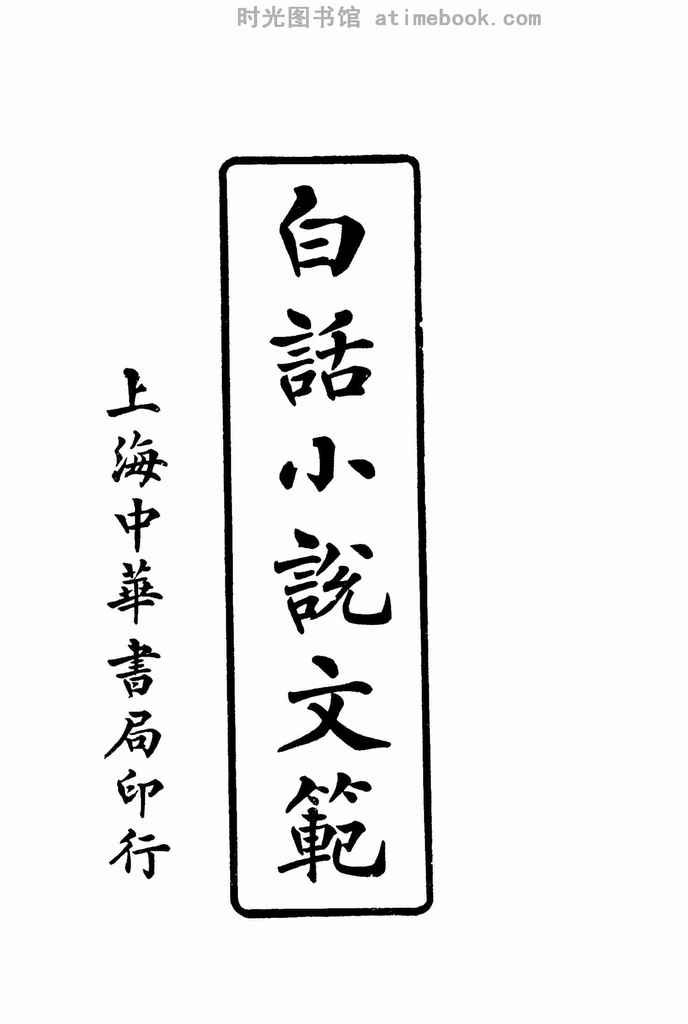 时光图书馆 atimebook.com
白話小說文範
上海中華書局印行